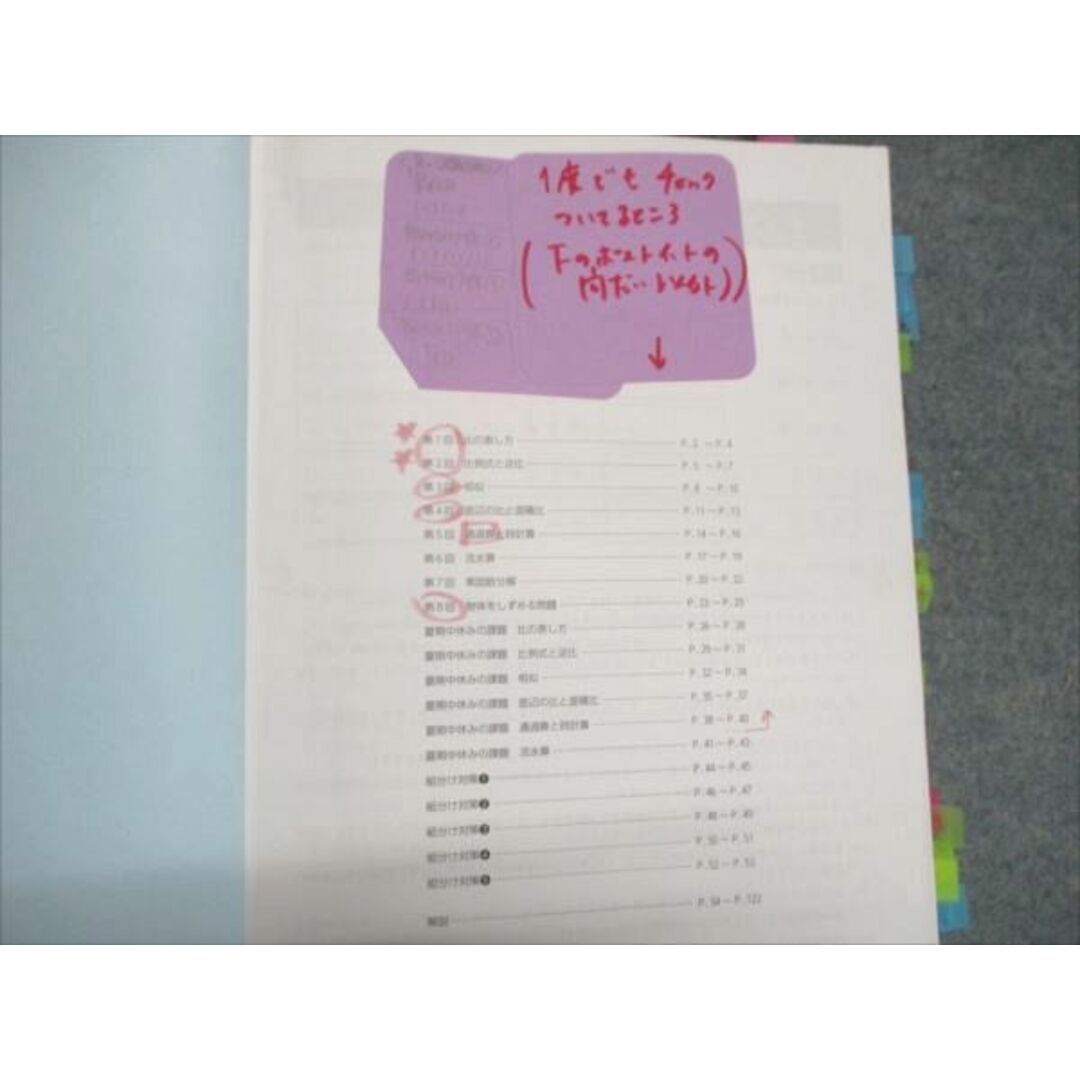 1度でも チェック
ついてるところ
(下のポストイットの
問だい以外ト)
↓
第1回 比の表し方 P.2 ～P.4
第2回 比例式と逆比 P.5 ～P.7
第3回 相似 P.8 ～P.10
第4回 底辺の比と面積比 P.11～P.13
第5回 通過算と時計算 P.14～P.16
第6回 流水算 P.17～P.19
第7回 素因数分解 P.20～P.22
第8回 物体をしずめる問題 P.23～P.25
夏期中休みの課題 比の表し方 P.26～P.28
夏期中休みの課題 比例式と逆比 P.29～P.31
夏期中休みの課題 相似 P.32～P.34
夏期中休みの課題 底辺の比と面積比 P.35～P.37
夏期中休みの課題 通過算と時計算 P.38～P.40
夏期中休みの課題 流水算 P.41～P.43
組分け対策❶ P.44～P.45
組分け対策❷ P.46～P.47
組分け対策❸ P.48～P.49
組分け対策❹ P.50～P.51
組分け対策❺ P.52～P.53
解説 P.54～P.122